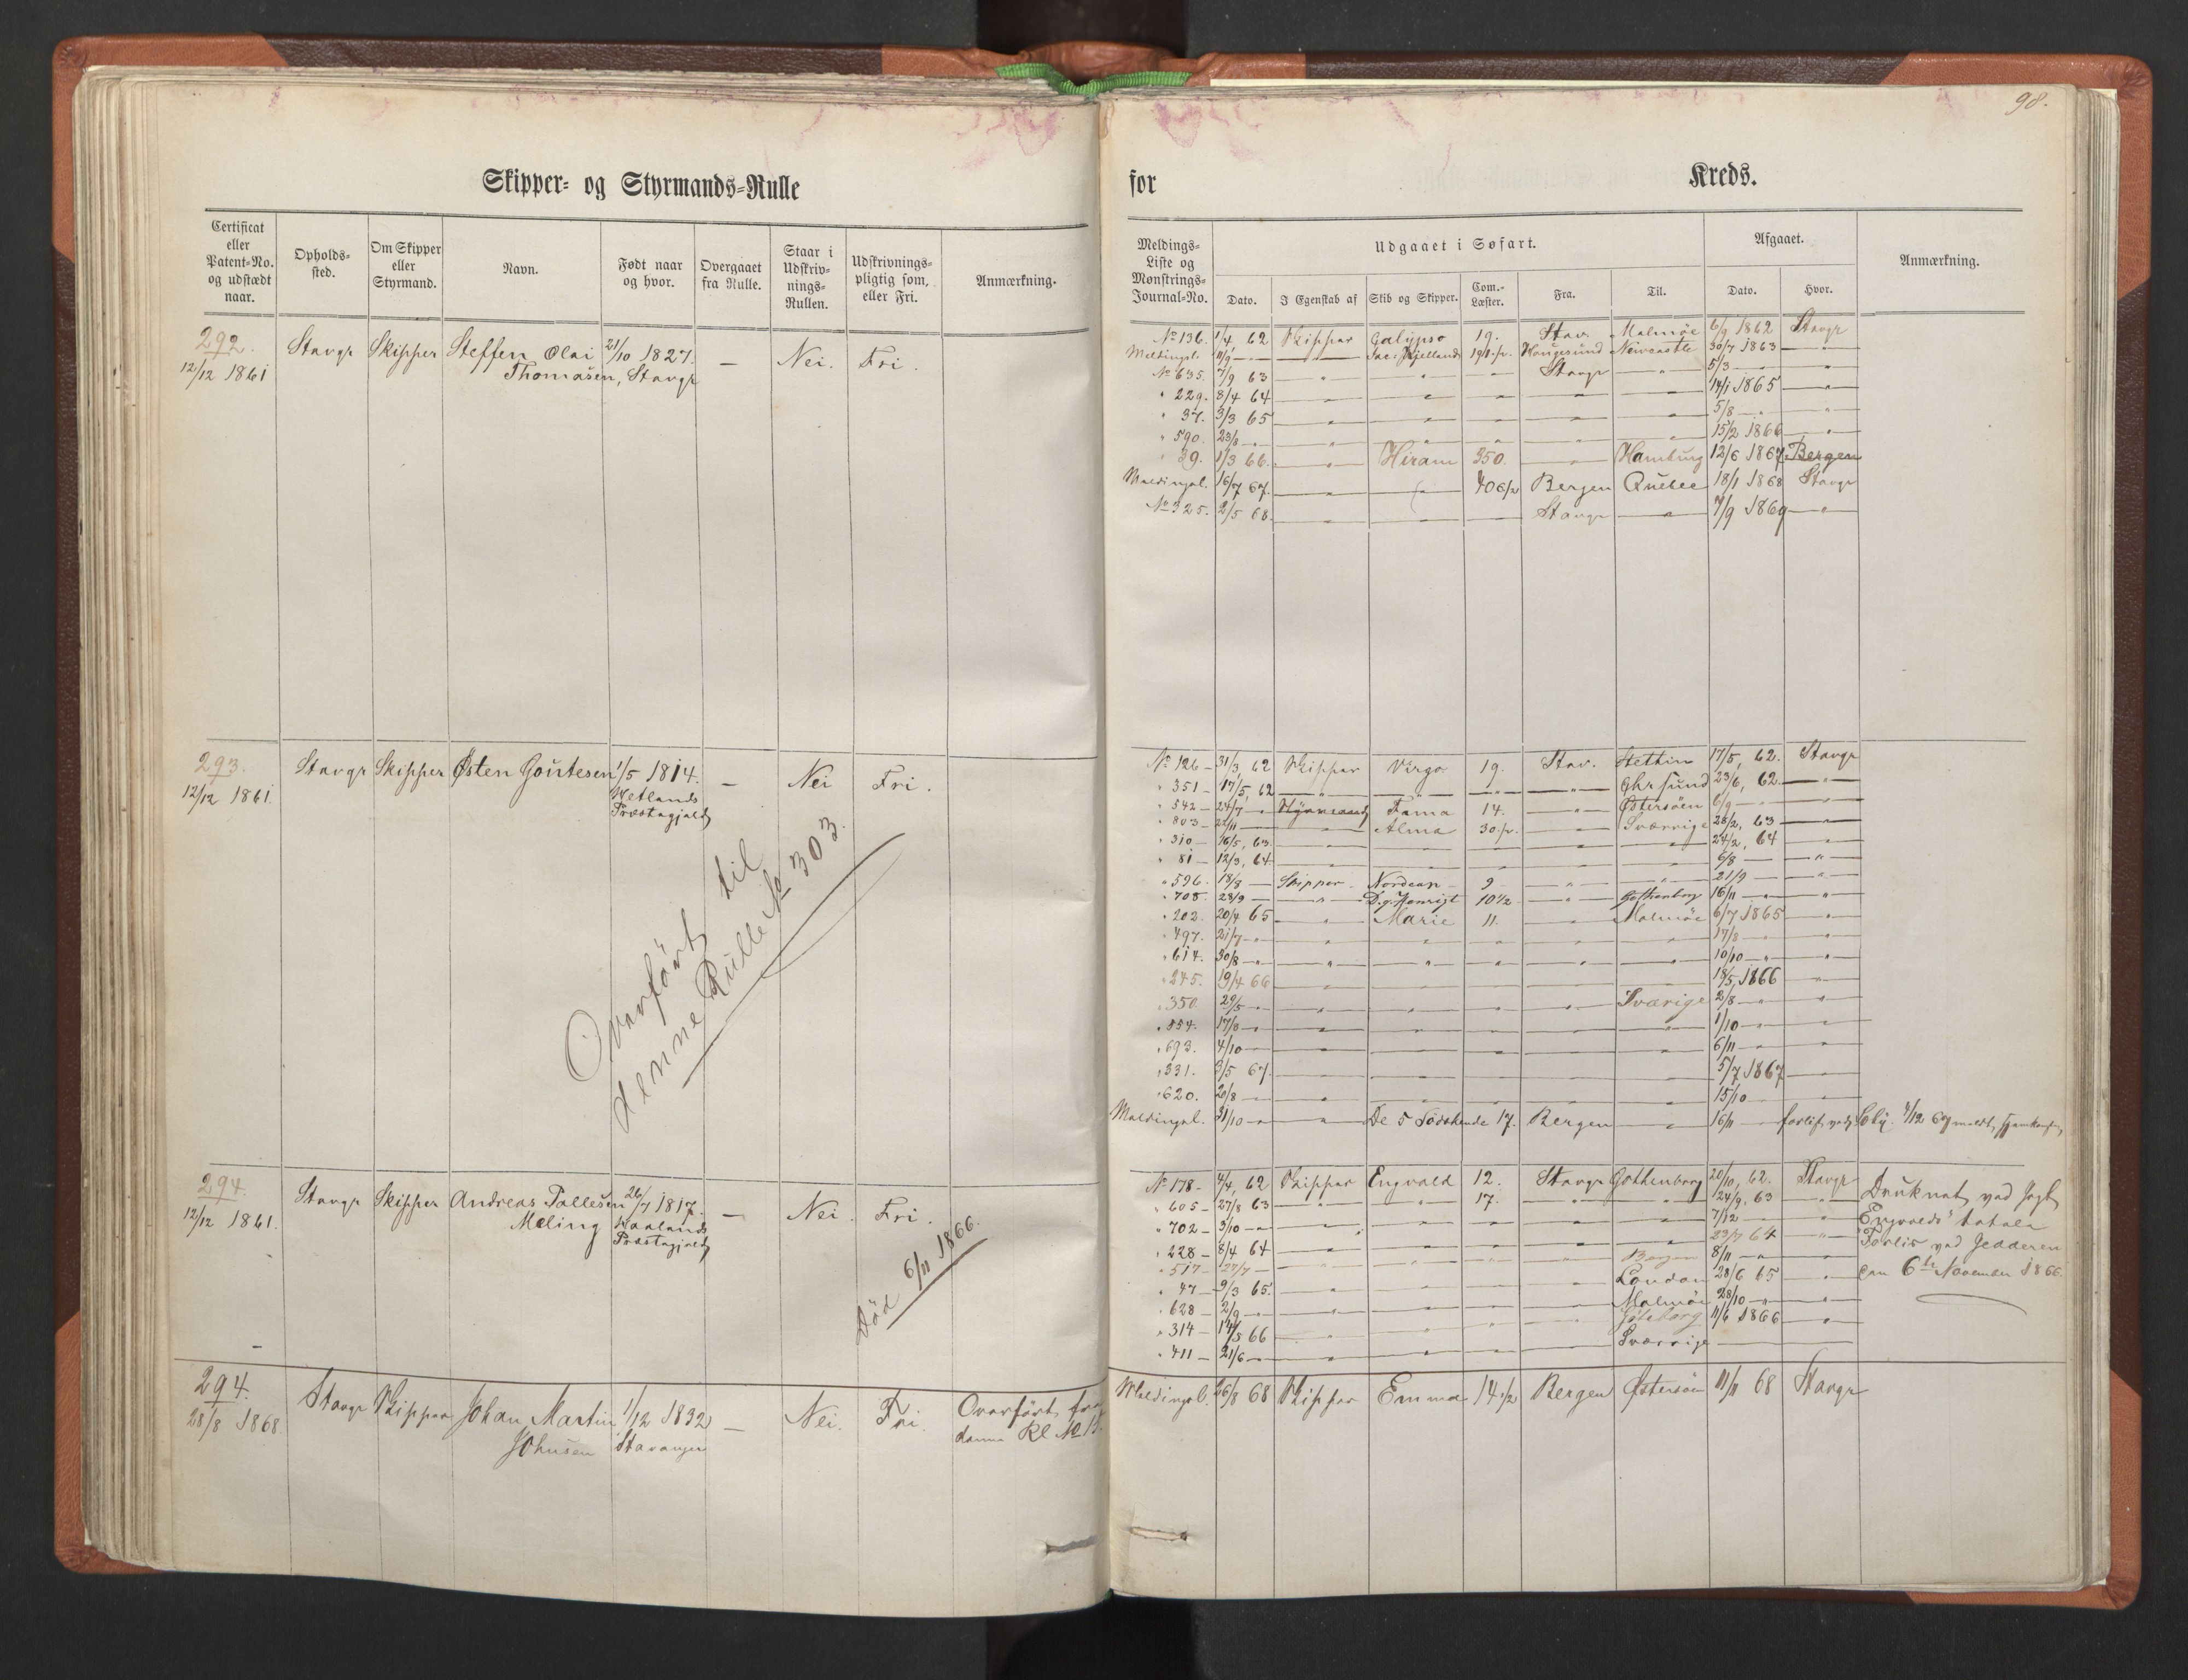 98.
Skipper- og Styrmands-Rulle
for Kreds.
Certificat eller Patent-No. og udstædt naar. Opholds-sted. Om Skipper eller Styrmand. Navn. Født naar og hvor. Overgaaet fra Rulle. Staar i Udskriv-nings-Rullen. Udskrivnings-pligtig som, eller Fri. Anmærkning.
Meldings-Liste og Mønstrings-Journal-No. Udgaaet i Søfart. Afgaaet. Anmærkning.
Dato. I Egenskab af Skib og Skipper. Com.-Læster. Fra. Til. Dato. Hvor.
292. Stavgr Skipper Steffen Olai 21/10 1827. — Nei. Fri.
12/12 1861 Thomasen, Stavgr
No 136. 1/4 62 Skipper Galypso 19. Stav. Malmöe 6/9 1862 Stavgr
Meldingsl. Jac: Kjelland Haugesund Newcastle 30/7 1863 — "
No 635. 7/9 63 — " — — Stavgr — " 5/3 — "
" 229. 8/4 64 — " " " " " 14/1 1865 — "
" 37. 3/3 65 — " " " " " 5/8 — " "
" 590. 23/8 — " — " " " " " 15/2 1866 — "
" 39. 1/3 66. — " Hiram 350. — " Hamburg 12/6 1867 Bergen
Meldingsl. 16/7 67. — " 406/2 Bergen Quebec 18/1 1868 Stavgr
No 325. 2/5 68. — " — " — Stavgr — " 7/9 1869 — "
293. Stavgr Skipper Østen Goutesen 1/5 1814. — Nei Fri.
12/12 1861. Hetlands
Præstegjeld
Overført til
denne Rulle No 303.
No 126 — 31/3, 62 Skipper Virgo 19. Stav. Stettin 17/5, 62. Stavgr
" 351 — 17/5, 62 — " — — " Chrsund 23/6, 62. — "
" 542 — 24/7 — " Styrmand Fama 14. — " Østersöen 6/9 — " "
" 803 — 22/11 — — " Alma 30. — " Sverrige 28/2, 63 — "
" 310 — 16/5, 63. — " — — — — 24/2, 64 — "
" 81 — 12/3, 64. — — — — — — 6/8 — — " —
" 596. 18/8 — Skipper — 9 — — " — " 21/9 — — "
" 708. 28/9 — — " — 10 1/2 — " Gothenborg 16/11 — " — "
" 202. 20/4 65 — " Marie 11. — " Malmöe 6/7 1865 — "
" 497. 21/7 — " — " " " " " 17/8 — " "
" 614. 30/8 — " — " " " " " 10/10 — " — "
" 245. 19/4 66 — " " " " " 18/5 1866 — "
" 350. 29/5 — " — " " " " Sverige 2/8 — " — "
" 554. 17/8 — " — " " " " " 1/10 — " — "
" 693. 4/10 — " — " " " " " 6/11 — " — "
" 331. 3/5 67. — " " " " " 5/7 1867 — "
" 620. 20/8 — " — " " " " " 15/10 — " — "
Meldingsl. 31/10 — " — " De 5 Södskende 17. Bergen — " 16/11 —
294. Stavgr Skipper Andreas Pallesen 26/7 1817. — Nei. Fri.
12/12 1861. Meling
Præstegjeld
Död 6/11 1866.
No 178 — 7/4, 62 Skipper Engvald 12. Stavgr Gothenborg 20/10, 62. Stavgr Druknet ved Jagt
" 605 — 27/8 63 — " " 17. " " 24/9, 63 " Engvalds totale
" 702 — 3/10 — " — " " " " 7/12 — " " Forlis ved Jedderen
" 228 — 8/4 64 — " " " " " 23/7 64 " den 6te November 1866.
" 517 — 27/7 — — " " " " Bergen 8/11 — " — "
" 47 — 9/3 65. — " " " " London 28/6 65 — "
" 628 — 2/9 — " — " " " " Malmöe 28/10 — " — "
" 314 — 14/5 66 — " " " " Göteborg 11/6 1866 — "
" 411 — 21/6 — " — " " " " Sverrige
294. Stavgr Skipper Johan Martin 1/12 1832 — Nei. Fri. Overført fra
28/8 1868. Johnsen Stavanger denne Rl No
Meldingsl. 26/8 68 Skipper Emma 14 1/2 Bergen Østersöen 11/11 68 Stavgr